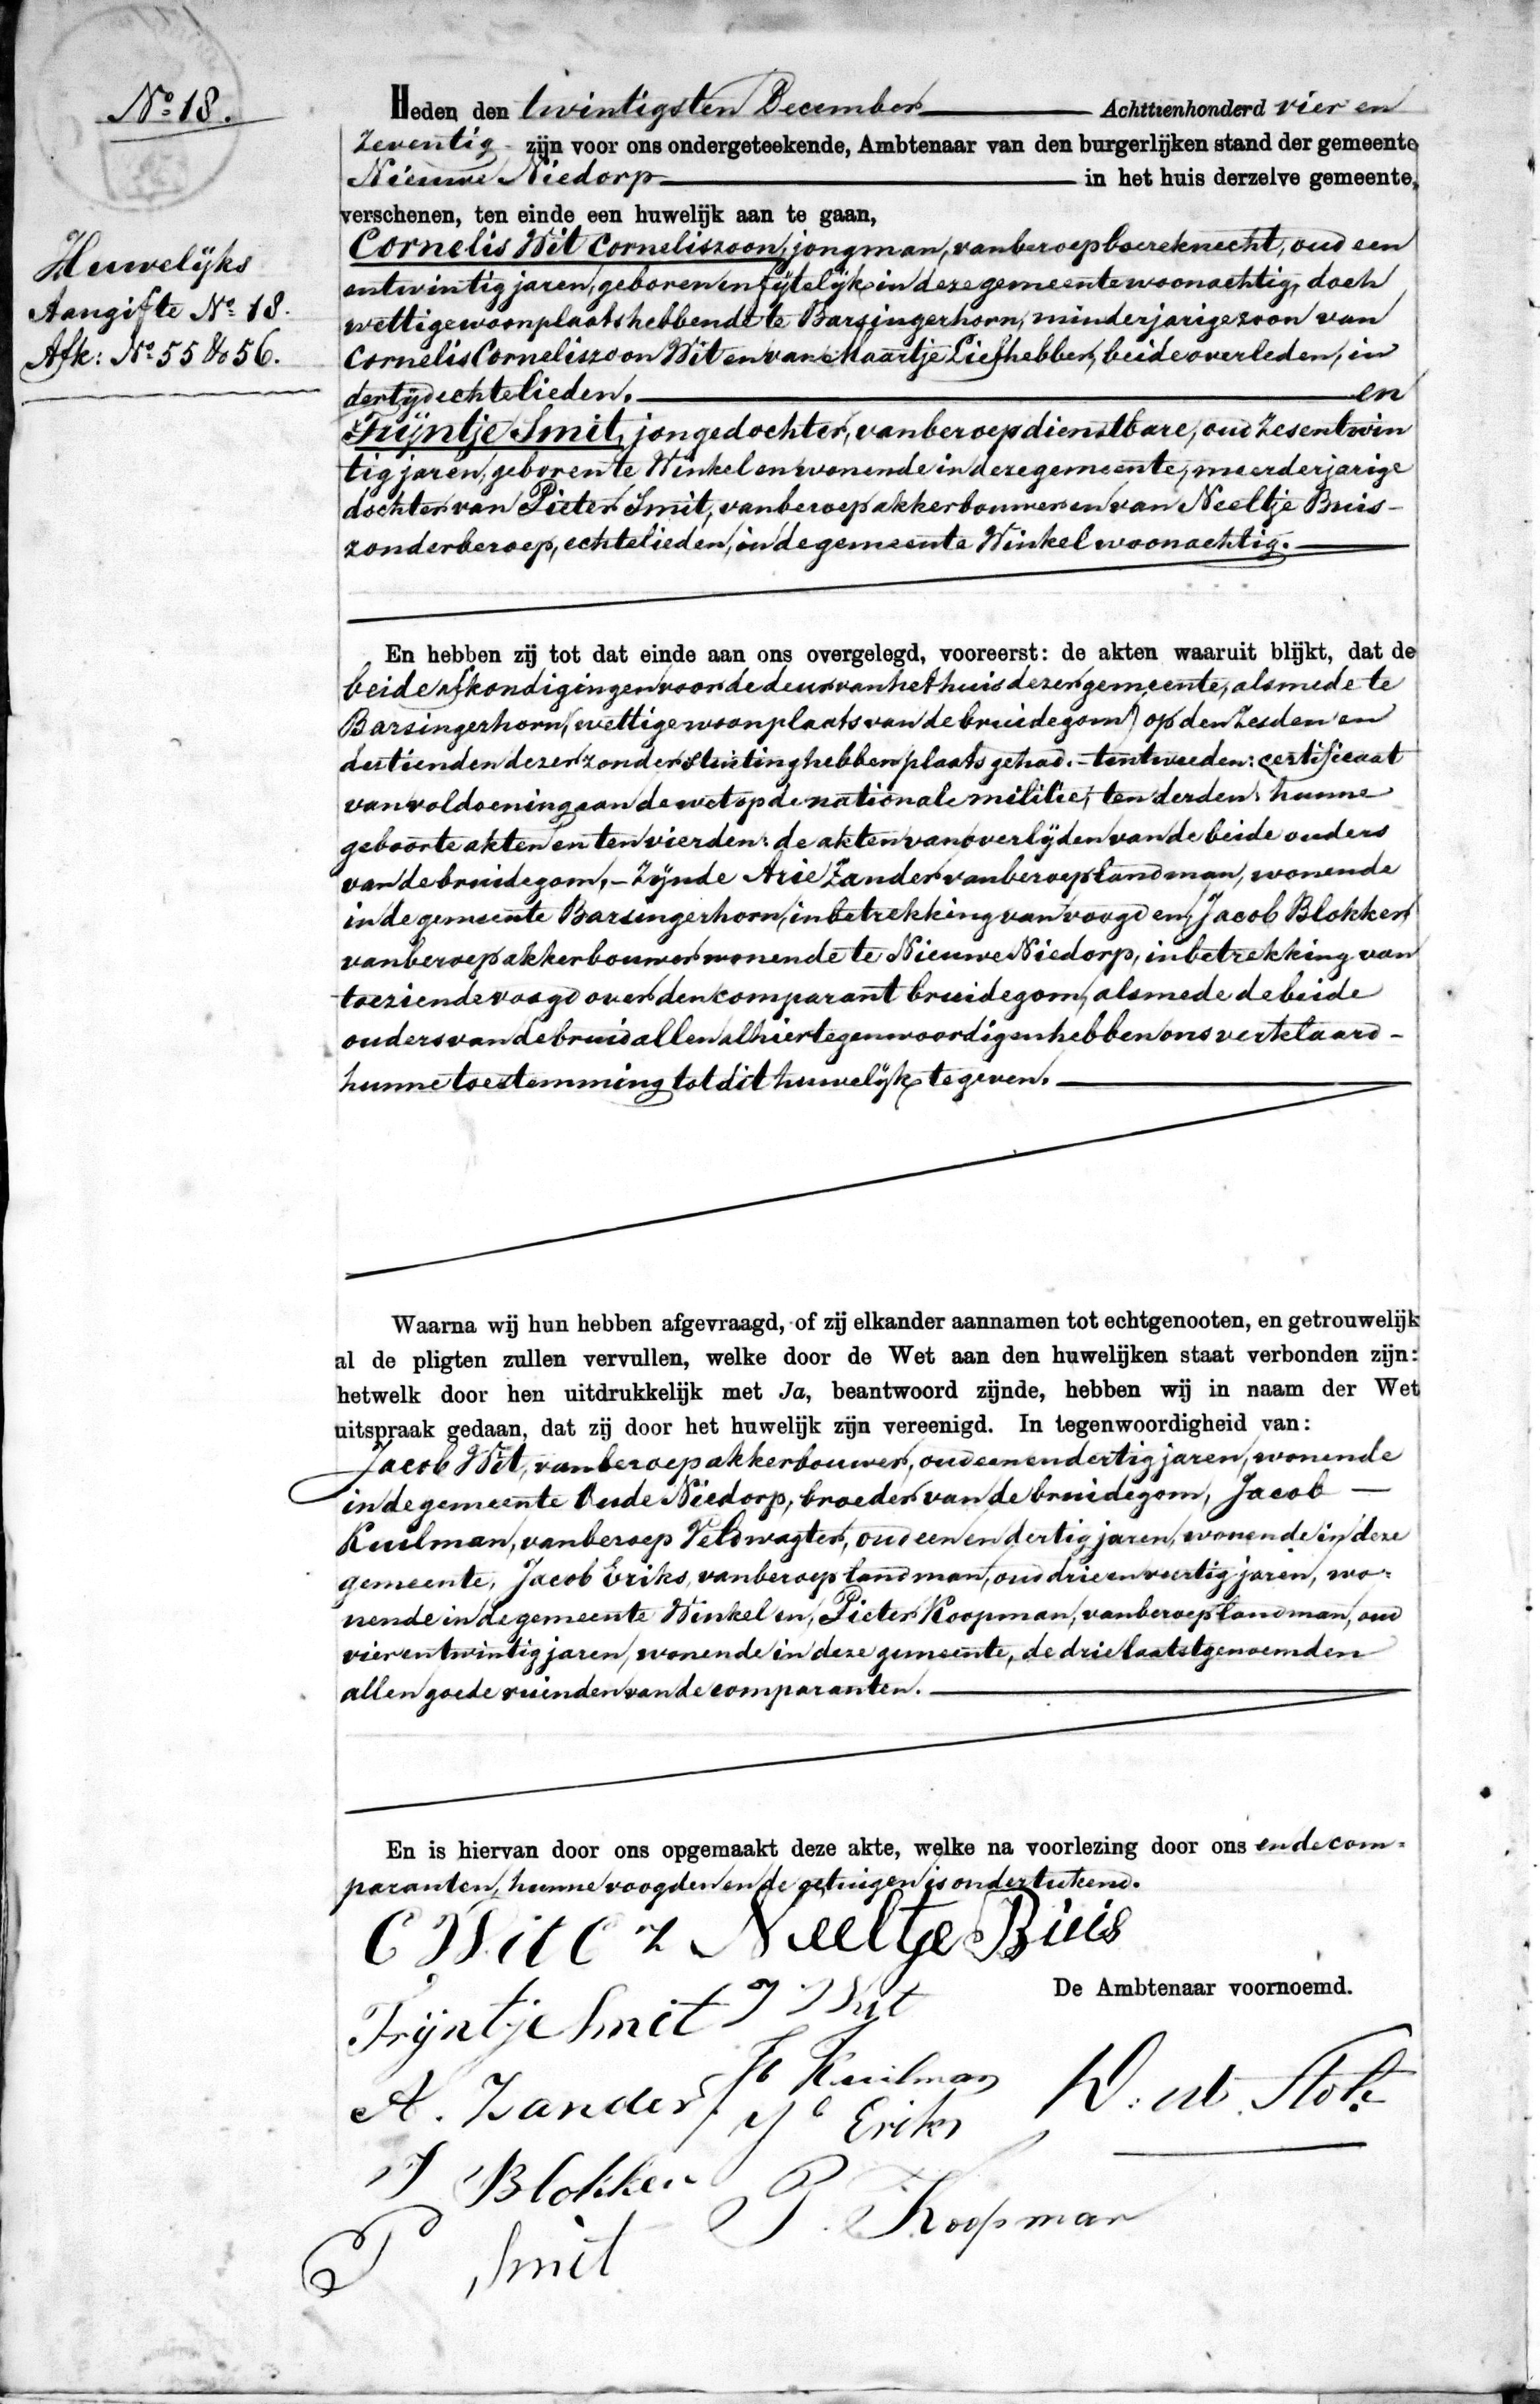 No. 18.
Huwelijks
Aangifte No. 18.
Afk: No. 55 & 56.
Heden den twintigsten December Achttienhonderd vier en
zeventig zijn voor ons ondergeteekende, Ambtenaar van den burgerlijken stand der gemeente
Nieuwe Niedorp in het huis derzelve gemeente,
verschenen, ten einde een huwelijk aan te gaan,
Cornelis Wit Corneliszoon, jongman, van beroep boereknecht, oud een
entwintig jaren, geboren en fijtelijk in deze gemeente woonachtig, doch
wettige woonplaats hebbende te Barsingerhorn, minderjarige zoon van
Cornelis Corneliszoon Wit en van Maartje Liefhebber, beide overleden, in
dertijd echtelieden. en
Trijntje Smit, jongedochter, van beroep dienstbare, oud zesentwin
tig jaren, geboren te Winkel en wonende in deze gemeente, meerderjarige
dochter van Pieter Smit, van beroep akkerbouwer en van Neeltje Buis-
zonder beroep, echtelieden, in de gemeente Winkel woonachtig.
En hebben zij tot dat einde aan ons overgelegd, vooreerst: de akten waaruit blijkt, dat de
beide afkondigingen voor de deur van het huis dezer gemeente, alsmede te
Barsingerhorn, (wettige woonplaats van de bruidegom) op den zesden en
dertienden dezer zonder stuiting hebben plaats gehad. - ten tweeden: certificaat
van voldoening aan de wet op de nationale militie; ten derden: hunne
geboorte akten en ten vierden: de akten van overlijden van de beide ouders
van de bruidegom, - Zijnde Arie Zander van beroep landman, wonende
in de gemeente Barsingerhorn, in betrekking van voogd en, Jacob Blokker
van beroep akkerbouwer wonende te Nieuwe Niedorp, in betrekking van
toeziende voogd over den comparant bruidegom, alsmede de beide
ouders van de bruid allen alhier tegenwoordig en hebben ons verklaard -
hunne toestemming tot dit huwelijk te geven.
Waarna wij hun hebben afgevraagd, of zij elkander aannamen tot echtgenooten, en getrouwelijk
al de pligten zullen vervullen, welke door de Wet aan den huwelijken staat verbonden zijn:
hetwelk door hen uitdrukkelijk met Ja, beantwoord zijnde, hebben wij in naam der Wet
uitspraak gedaan, dat zij door het huwelijk zijn vereenigd. In tegenwoordigheid van:
Jacob Wit, van beroep akkerbouwer, oud eenendertig jaren, wonende
in de gemeente Oude Niedorp, broeder van de bruidegom, Jacob -
Kuilman, van beroep Veldwagter, oud een en dertig jaren, wonende in deze
gemeente, Jacob Eriks, van beroep landman, oud drie en veertig jaren, wo=
nende in de gemeente Winkel en, Pieter Koopman, van beroep landman, oud
vier en twintig jaren, wonende in deze gemeente, de drie laatstgenoemden
allen goede vrienden van de comparanten.
En is hiervan door ons opgemaakt deze akte, welke na voorlezing door ons en de com=
paranten, hunne voogden en de getuigen is onderteekend.
C Wit Cz Neeltje Buis
De Ambtenaar voornoemd.
Trijntje Smit J Wit
Jb Kuilman
A. Zander Jb Eriks
J Blokker P. Koopman
P Smit